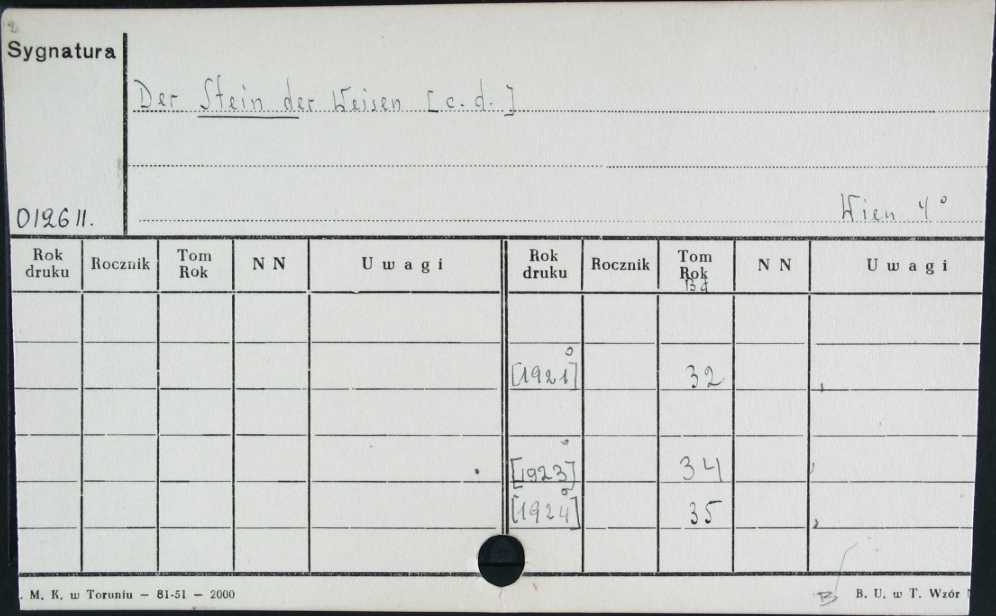 Sygnatura
Der Stein der Weisen [c.d.]
012611.
Wien 4°
Rok druku Rocznik Tom Rok N N Uwagi Rok druku Rocznik Tom Rok N N Uwagi
Bd
[1921] 32
[1923] 34
[1924] 35
. M. K. w Toruniu — 81-51 — 2000
B. U. w T. Wzór